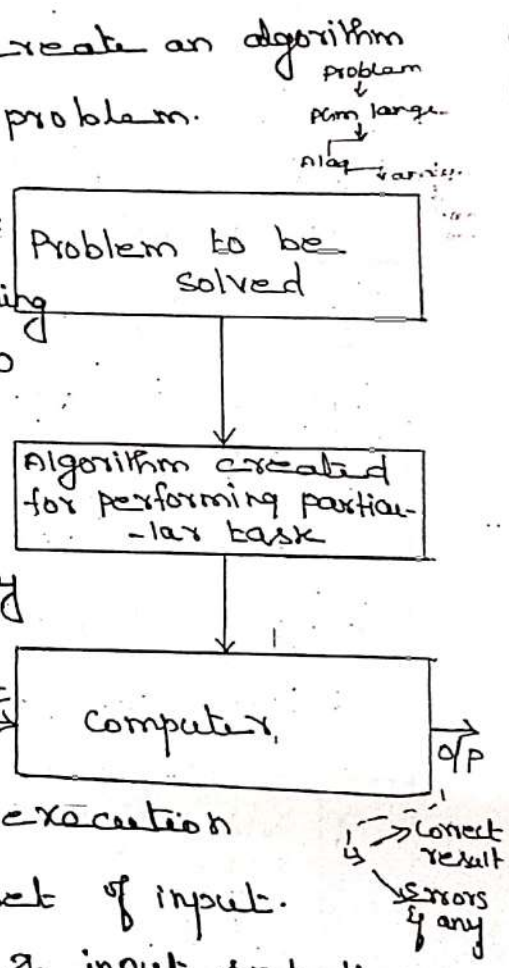 create an algorithm
problem.
Problem
Pgm
Problem to be
solved
ing
Algorithm created
for performing particu-
-lar task
Computer
O/P
execution
Correct
result
set of input.
Errors
if any
input